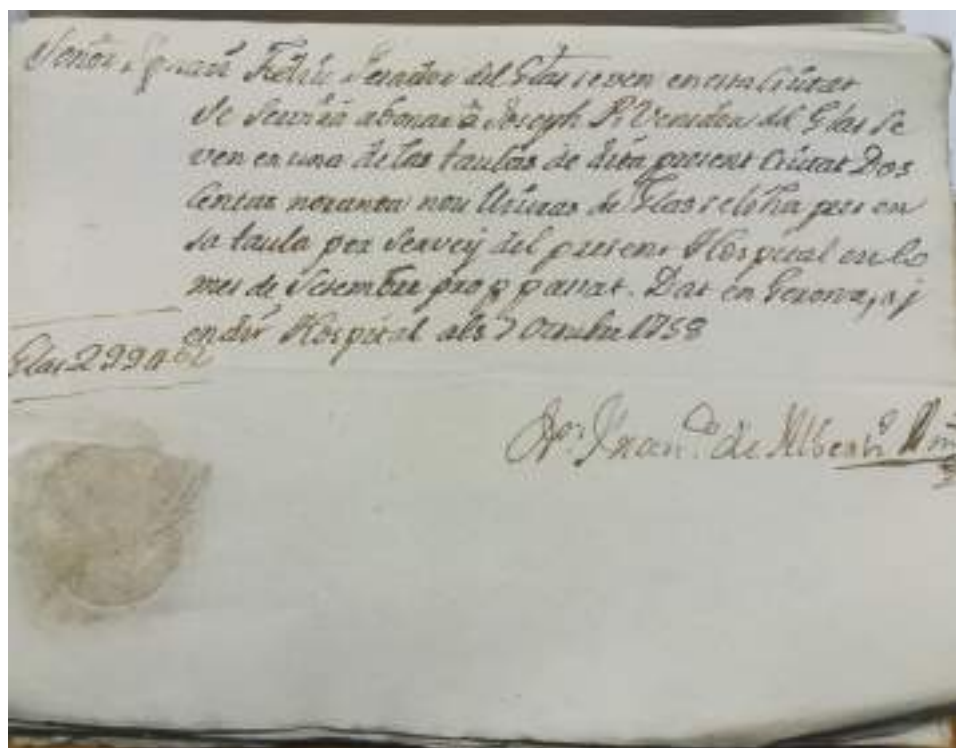 Señor Juan Feliu Pesador del Glas se ven en esta Ciutat
se servirà abonar à Joseph R. Venedor del Glas se
ven en una de las taulas de dita present Ciutat Dos
Centas noranta nou lliuras de Glas se li ha pres en
sa taula per Servey del present Hospital en lo
mes de Setembre prop passat. Dat en Gerona, y
en dit Hospital als 7 Octubre 1758
Glas 299
Dor. Fran.co de Alberti